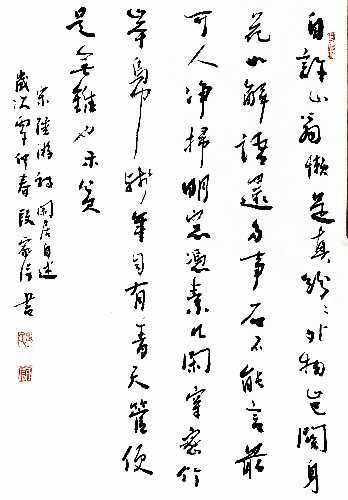 自許山翁懶是真紛々外物豈閑身
花如解語還多事石不能言最
可人净掃明窓憑素几閑穿密竹
岸烏巾殘年自有青天管便
是無錐也未貧
宋陸游詩閑居自述
歲次辛卯春段家信書